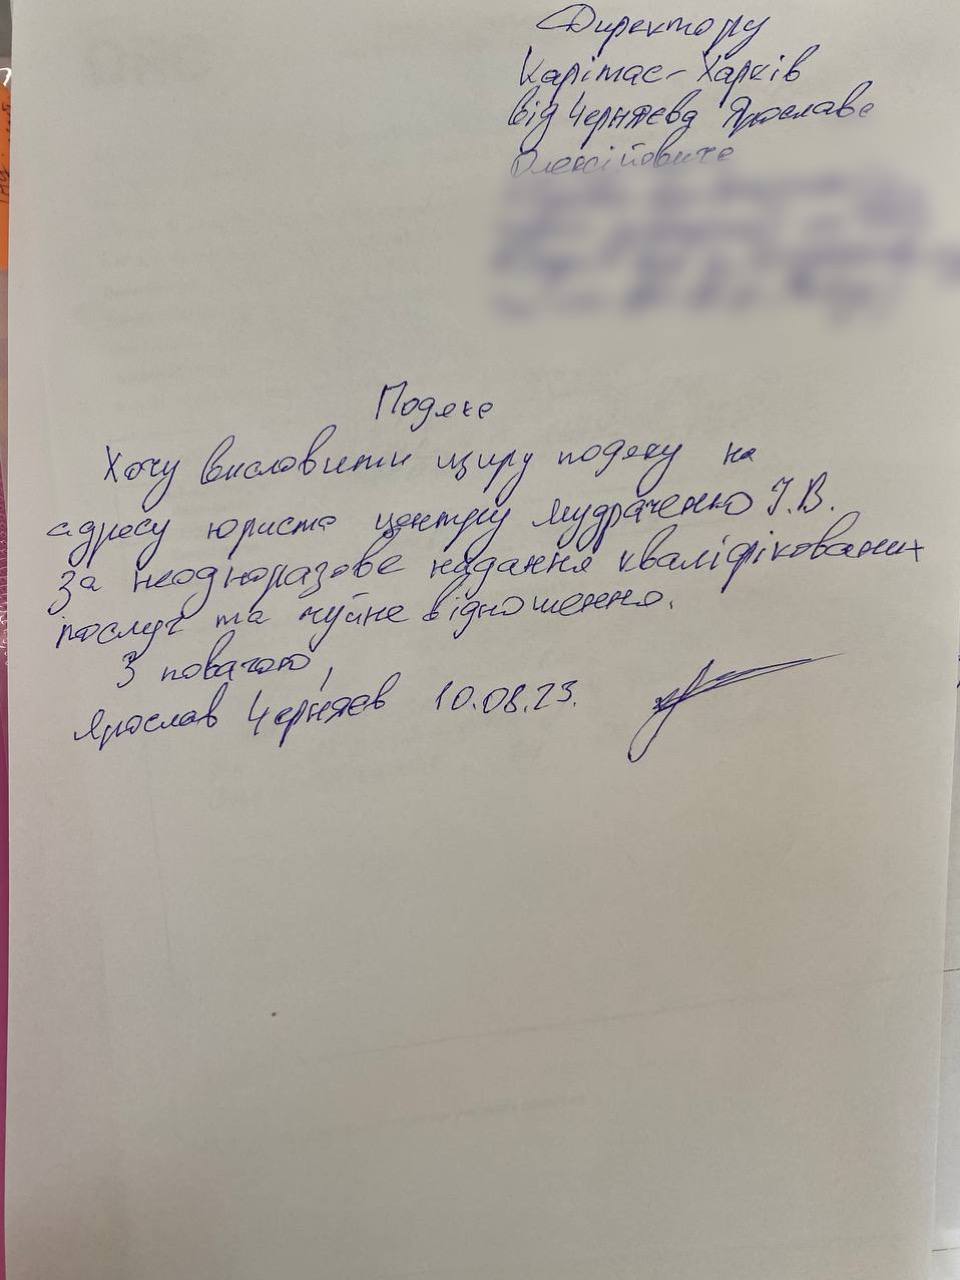 Директору
Карітас-Харків
від Черняєва Ярослава
Олексійовича
Подяка
Хочу висловити щиру подяку на
адресу юриста центру Мудраченко І.В.
За неодноразове надання кваліфікованих
послуг та чуйне відношення.
З повагою,
Ярослав Черняєв 10.08.23.